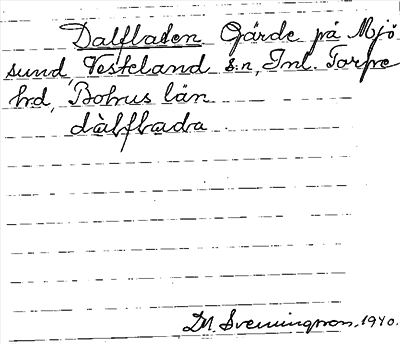 Dalfladen Gärde på Mjö
sund, Vesteland s:n, Inl. Torpe
hd, Bohus län
dàlfbada
DM. Svenningson. 1940.